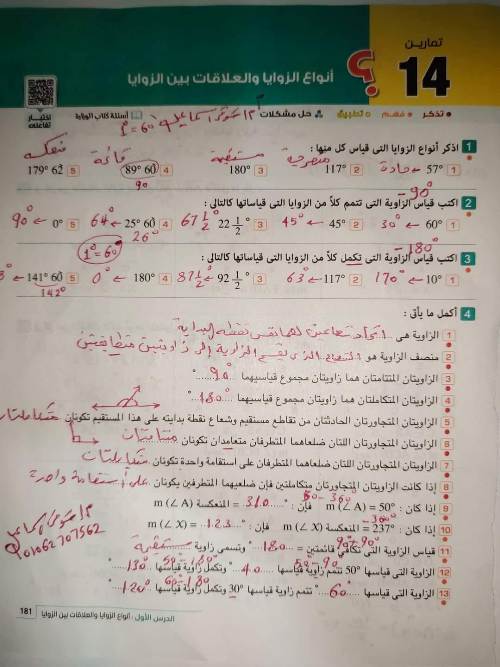 تمارين
14
أنواع الزوايا والعلاقات بين الزوايا
اختبار تفاعلى
تذكر • فهم • تطبيق حل مشكلات أسئلة كتاب الوزارة
1° = 60
1 اذكر أنواع الزوايا التى قياس كل منها :
حادة منفرجة مستقيمة قائمة منعكسة
1 57° 2 117° 3 180° 4 89° 60 5 179° 62
90
- 90°
2 اكتب قياس الزاوية التى تتمم كلاً من الزوايا التى قياساتها كالتالى :
1 60° ← 30° 2 45° ← 45° 3 22 1/2° 67 1/2 4 25° 60 ← 64° 5 0° ← 90°
26°
1° = 60
- 180°
3 اكتب قياس الزاوية التى تكمل كلاً من الزوايا التى قياساتها كالتالى :
1 10° ← 170° 2 117° ← 63° 3 92 1/2° ← 87 1/2 4 180° ← 0° 5 141° 60 ← 8°
142°
4 أكمل ما يأتى :
1 الزاوية هى اتحاد شعاعين لهما نفس نقطة البداية
2 منصف الزاوية هو الشعاع الذى يقسم الزاوية إلى زاويتين متطابقتين
3 الزاويتان المتتامتان هما زاويتان مجموع قياسيهما 90°
4 الزاويتان المتكاملتان هما زاويتان مجموع قياسيهما 180°
5 الزاويتان المتجاورتان الحادثتان من تقاطع مستقيم وشعاع نقطة بدايته على هذا المستقيم تكونان متكاملتان
6 الزاويتان المتجاورتان اللتان ضلعاهما المتطرفان متعامدان تكونان متتامتان
7 الزاويتان المتجاورتان اللتان ضلعاهما المتطرفان على استقامة واحدة تكونان متكاملتان
8 إذا كانت الزاويتان المتجاورتان متكاملتين فإن ضلعيهما المتطرفين يكونان على استقامة واحدة
50 - 360°
9 إذا كان : m (∠ A) = 50° فإن : m (∠ A) المنعكسة = 310°
- 360°
10 إذا كان : m (∠ X) المنعكسة = 237° فإن : m (∠ X) = 123°
90 + 90°
11 قياس الزاوية التى تكافئ قائمتين = 180° وتسمى زاوية مستقيمة
50 - 90 50 - 180°
12 الزاوية التى قياسها 50° تتمم زاوية قياسها 40° وتكمل زاوية قياسها 130°
60 - 180
13 الزاوية التى قياسها 60° تتمم زاوية قياسها 30° وتكمل زاوية قياسها 120°
01062707562
الدرس الأول : أنواع الزوايا والعلاقات بين الزوايا 181